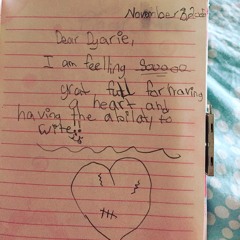 November
Dear Dyarie,
I am feelling
grat full for having
a heart, and
having the ability to
write